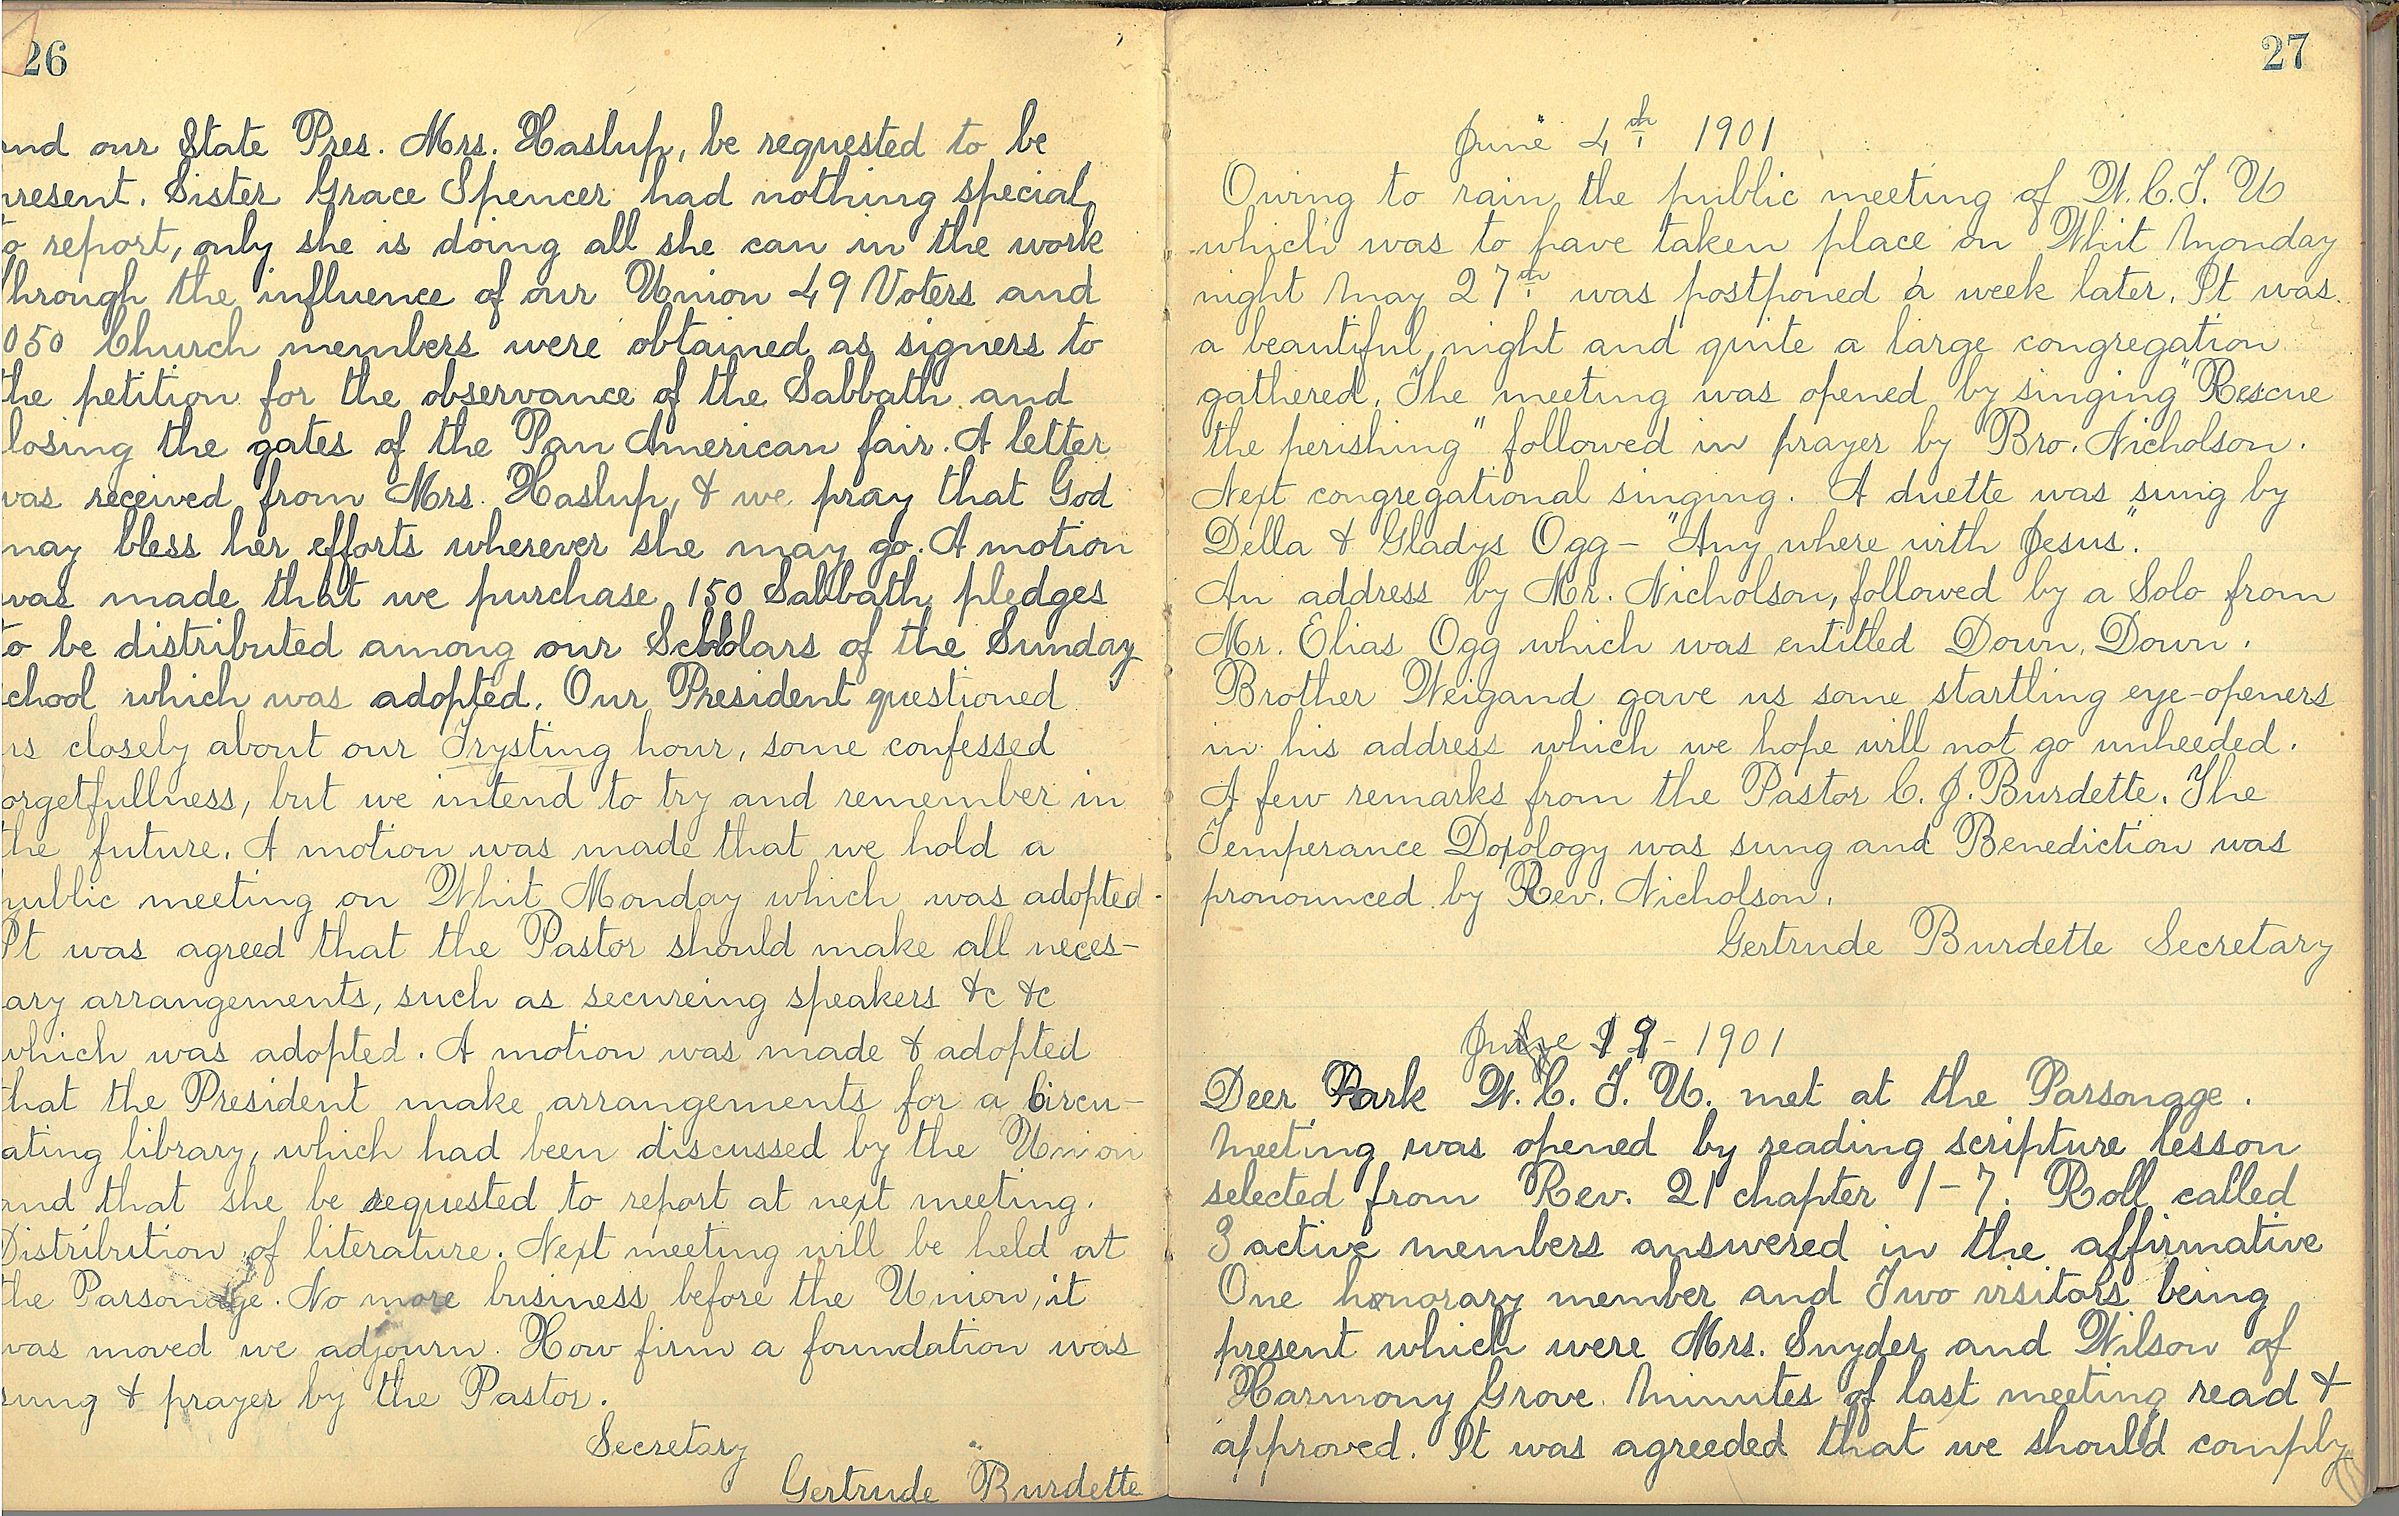 26
and our State Pres. Mrs. Haslup, be requested to be
present. Sister Grace Spencer had nothing special
to report, only she is doing all she can in the work
through the influence of our Union 49 Voters and
050 Church members were obtained as signers to
the petition for the observance of the Sabbath and
losing the gates of the Pan American fair. A letter
was received from Mrs. Haslup, & we pray that God
may bless her efforts wherever she may go. A motion
was made that we purchase 150 Sabbath pledges
to be distributed among our Scholars of the Sunday
chool which was adopted. Our President questioned
us closely about our Trysting hour, some confessed
orgetfullness, but we intend to try and remember in
the future. A motion was made that we hold a
public meeting on Whit Monday which was adopted.
It was agreed that the Pastor should make all neces-
ary arrangements, such as secureing speakers &c &c
which was adopted. A motion was made & adopted
that the President make arrangements for a Circu-
ating library, which had been discussed by the Union
and that she be requested to report at next meeting.
Distribution of literature. Next meeting will be held at
the Parsonage. No more business before the Union, it
was moved we adjourn. How firm a foundation was
sung & prayer by the Pastor.
Secretary
Gertrude Burdette
27
June 4th 1901
Owing to rain the public meeting of W.C.T.U
which was to have taken place on Whit Monday
night May 27th was postponed a week later. It was
a beautiful night and quite a large congregation
gathered. The meeting was opened by singing "Rescue
the perishing" followed in prayer by Bro. Nicholson.
Next congregational singing. A duette was sung by
Della & Gladys Ogg - "Any where with Jesus".
An address by Mr. Nicholson, followed by a Solo from
Mr. Elias Ogg which was entitled Down, Down.
Brother Weigand gave us some startling eye-openers
in his address which we hope will not go unheeded.
A few remarks from the Pastor C. J. Burdette. The
Temperance Doxology was sung and Benediction was
pronounced by Rev. Nicholson.
Gertrude Burdette Secretary
19 - 1901
Deer Park W. C. T. U. met at the Parsonage.
Meeting was opened by reading scripture lesson
selected from Rev. 21 chapter 1-7. Roll called
3 active members answered in the affirmative
One honorary member and Two visitors being
present which were Mrs. Snyder and Wilson of
Harmony Grove. Minutes of last meeting read &
approved. It was agreeded that we should comply